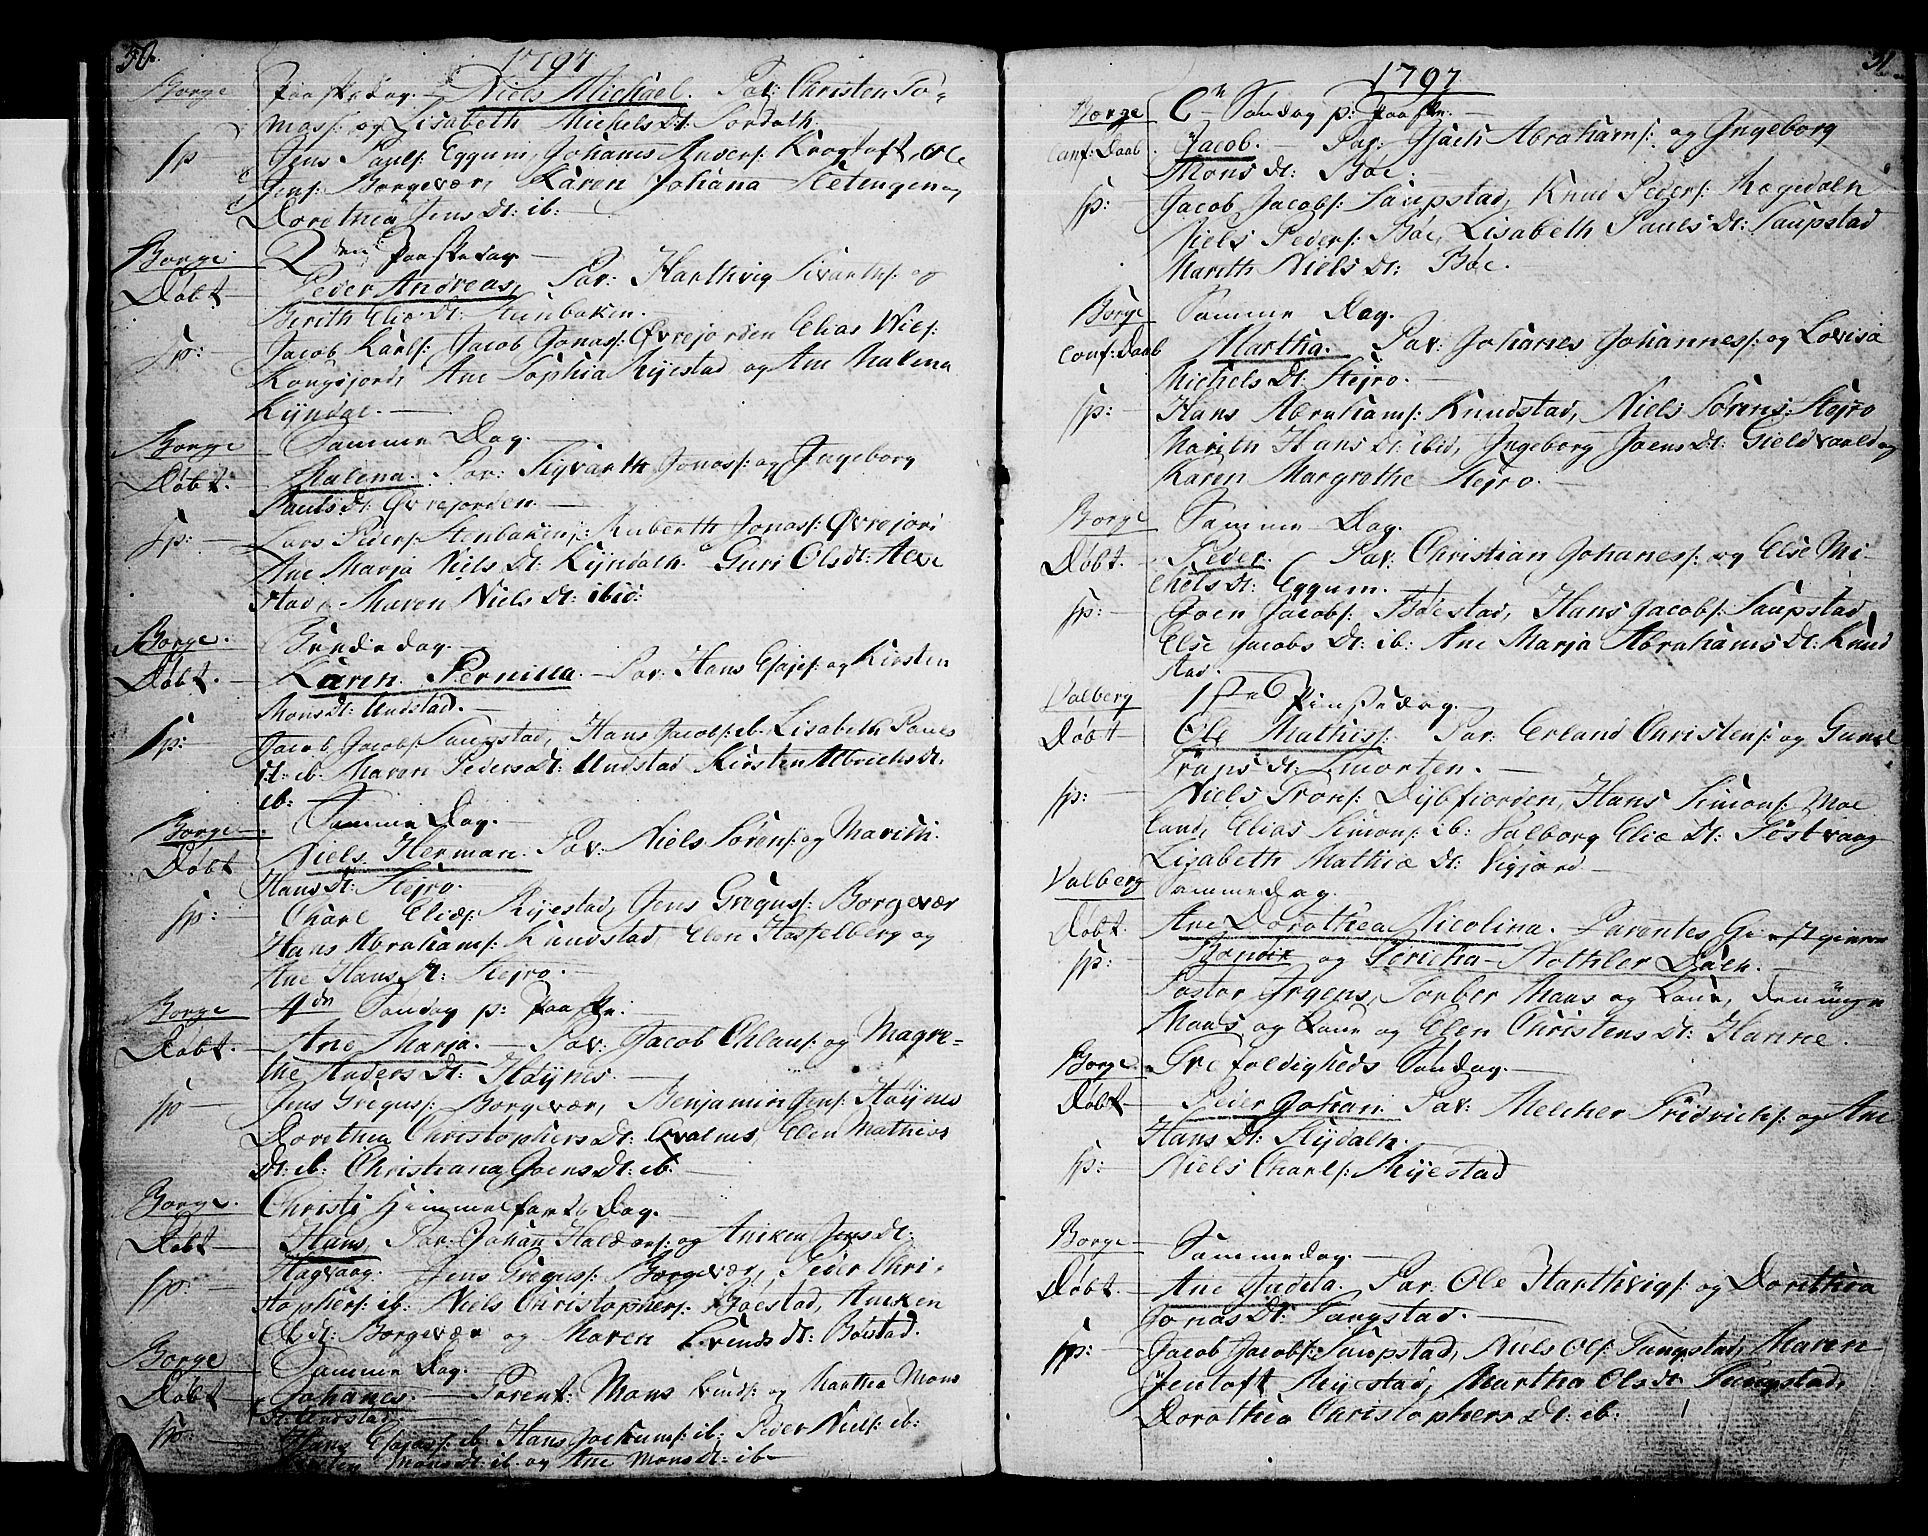 50.
1797
Borge Paaskedag. — Niels Michael. Par: Christen To-
mas: og Lisabeth Michels Dt: Sørdalh.
Sp Jens Pauls: Eggum, Johanes Anders: Krogtoft, Ole
Jens: Borgevær, Karen Johana Sletengen og
Dorethea Jens Dt: ib: —
Borge 2den Paaskedag —
Døbt — Peder Andreas, Par: Harthvig Sivarths: og
Berith Eliæ Dt: Steinbaken.
Sp: Jacob Karls: Jacob Jonas: Øvrejorden Elias Niels:
Kongsjord, Ane Sophia Myestad og Ane Malena
Kyndal. —
Borge Samme Dag. —
Døbt. — Malena. Par: Syvarth Jonas: og Ingeborg
Pauls Dt: Øvrejorden. —
Sp: — Lars Peders: Stenbaken: Ruberth Jonas: Øvrejori
Ane Marja Niels Dt: Kyndalh. Guri Olsdt:
stad, Maren Niels Dt: ibid:
Borge. Beededag. —
Døbt. — Karen Pernilla. — Par: Hans Esajes: og Kirsten
Mons dt: Undstad. —
Sp: Jacob Jacobs: Saupstad, Hans Jacobs: ib. Lisabeth Pauls
dt: ib: Maren Peders Dt: Undstad Kirsten Albrichs dt:
ib:
Borge — Samme Dag. —
Døbt Niels Herman. Par: Niels Sørens: og Marith
Hans Dt: Stejro.
Sp: Charl Eliæs: Myestad, Jens Gregus: Borgevær
Hans Abrahams: Knudstad, Elen Hasselberg og
Ane Hans Dt: Stejro. —
Borge 4de Søndag p: Paaske. —
Døbt. — Ane Marja. — Par: Jacob Chlaus: og Magre-
the Anders Dt: Høynes. —
Sp — Jens Gregus: Borgevær, Benjamin Jens: Høynes
Dorethea Christophers Dt: Qvalnes, Elen Mathias
Dt: ib: Christiana Joens dt: ib. —
Borge. Christi Himmelfarts Dag. —
Døbt — Hans. Par: Johan Haldors: og Aneken Jens dt:
Hagvaag.
Sp. — Jens Gregus: Borgevær, Peder Chri-
stophers: ib: Niels Christophers: Boestad, Aneken
Ols dt: Borgevær og Maren Knuds dt: Bolstad.
Borge — Samme Dag. —
Døbt — Johanes. — Parent: Mons Knuds: og Martha Mons
dt: Undstad.
Sp — Hans Esajas: ib, Hans Jochums: ib: Peder Niels: ib:
Kirsten Mons dt: ib og Ane Mons dt: ib —
51
1797
Borge 6te Søndag p: Paaske. —
Conf: Daab. Jacob. — Par: Isach Abrahams: og Ingeborg
Mons dt: Bøe.
Sp: Jacob Jacobs: Saupstad, Knud Peders: Hægedaln
Niels Peders: Bøe, Lisabeth Pauls Dt: Saupstad
Marith Niels Dt: Bøe.
Borge Samme Dag.
Conf: Daab Martha. — Par: Johanes Johannes: og Lovisa
Michels Dt: Stejro. —
Sp: — Hans Abrahams: Knudstad, Niels Sørens: Stejro
Marith Hans dt: ibid, Ingeborg Joens Dt: Gieldsvald og
Karen Margrethe Stejro. —
Borge Samme Dag.
Døbt. — Peder. Par: Christian Johanes: og Else Mi-
chels dt: Eggum. —
Sp: — Joen Jacobs: Bøestad, Hans Jacobs: Saupstad
Else Jacobs Dt: ib: Ane Marja Abrahams dt: Knud
stad. —
Valberg 1ste Pinstedag. —
Døbt — Ole Mathis: Par: Erland Christens: og Gunel
Trons dt: Smorten. —
Sp: — Niels Trons: Dybfiorden, Hans Simons: Moe
land, Elias Simons: ib: Valborg Eliæ dt: Føstvaag
Lisabeth Mathiæ dt: Vigjord —
Valberg Samme Dag.
Døbt. — Ane Dorothea Nicolina. Parentes Giestgiver
Bendix og Fericha Nothler Dach.
Sp: Pastor Irgens, Sorber Maas og Kone, den unge
Maas og Kone og Elen Christens dt: Hanne. —
Borge. Trefoldigheds Søndag. —
Døbt — Peder Johan. Par: Melcher Fridrichs: og Ane
Hans Dt: Slydalh. —
Sp: — Niels Charls: Myestad
Borge — Sammedag. —
Døbt. — Ane Judita. Par: Ole Harthvigs: og Dorethea
Jonas dt: Tangstad. —
Sp: — Jacob Jacobs: Saupstad, Niels Ols: Tangstad, Maren
Jentoft Myestad, Martha Ols dt: Tangstad,
Dorothea Christophers dt: ib: